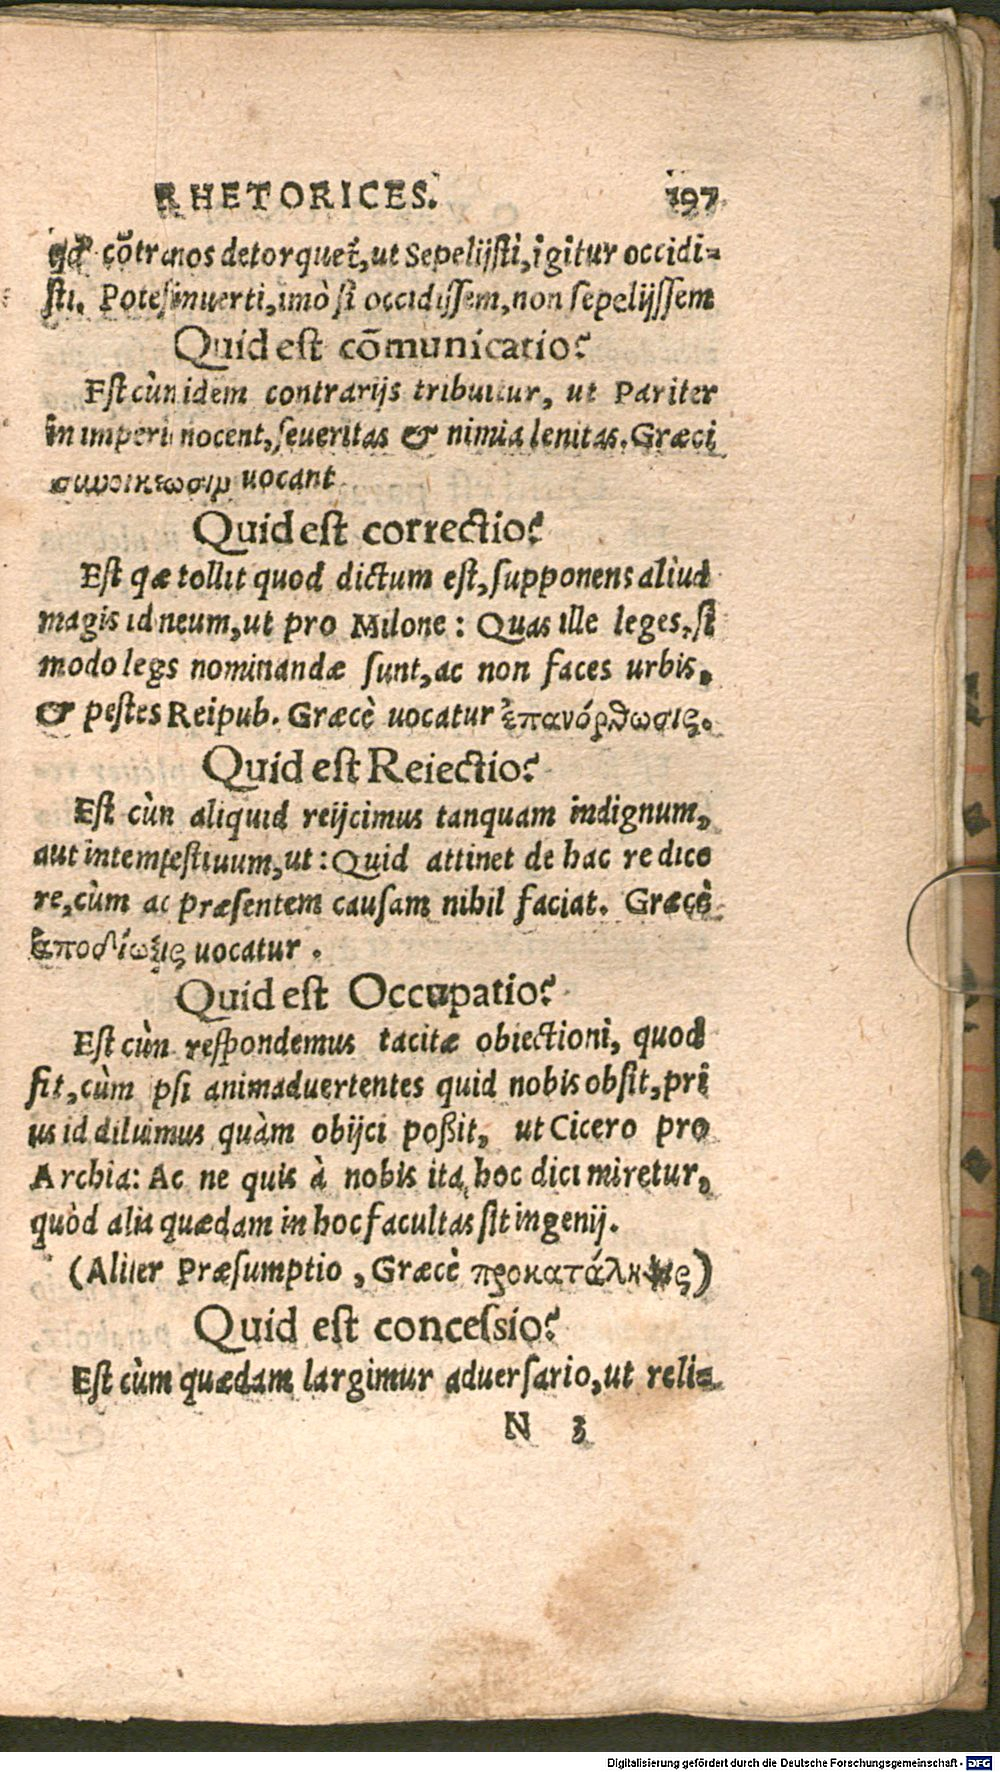 RHETORICES. 197
qđ cõtra nos detorquet̃, ut Sepelijsti, igitur occidi=
sti. Potes inuerti, imò si occidissem, non sepelijssem
Quid est cõmunicatio?
Est cùm idem contrarijs tribuitur, ut Pariter
in imperi nocent, seueritas & nimia lenitas. Græci
συνοικείωσιν uocant
Quid est correctio?
Est qæ tollit quod dictum est, supponens aliud
magis idneum, ut pro Milone: Quas ille leges, si
modo legs nominandæ sunt, ac non faces urbis,
& pestes Reipub. Græcè uocatur ἐπανόρθωσις.
Quid est Reiectio?
Est cùn aliquid reijcimus tanquam indignum,
aut intempestiuum, ut: Quid attinet de hac re dice
re, cùm ad præsentem causam nihil faciat. Græcè
ἀποδίωξις uocatur.
Quid est Occupatio?
Est cùm respondemus tacitæ obiectioni, quod
fit, cùm ipsi animaduertentes quid nobis obsit, pri
us id diluimus quàm obijci poßit, ut Cicero pro
Archia: Ac ne quis à nobis ita hoc dici miretur,
quòd alia quædam in hoc facultas sit ingenij.
(Aliter Præsumptio, Græcè προκατάληψις)
Quid est concessio?
Est cùm quædam largimur aduersario, ut reli=
N 3
Digitalisierung gefördert durch die Deutsche Forschungsgemeinschaft - DFG